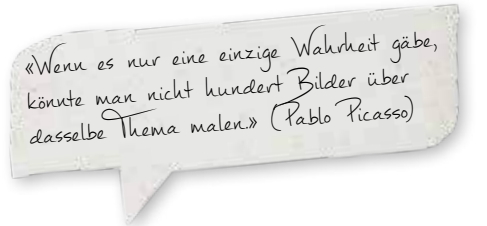 «Wenn es nur eine einzige Wahrheit gäbe,
könnte man nicht hundert Bilder über
dasselbe Thema malen.» (Pablo Picasso)